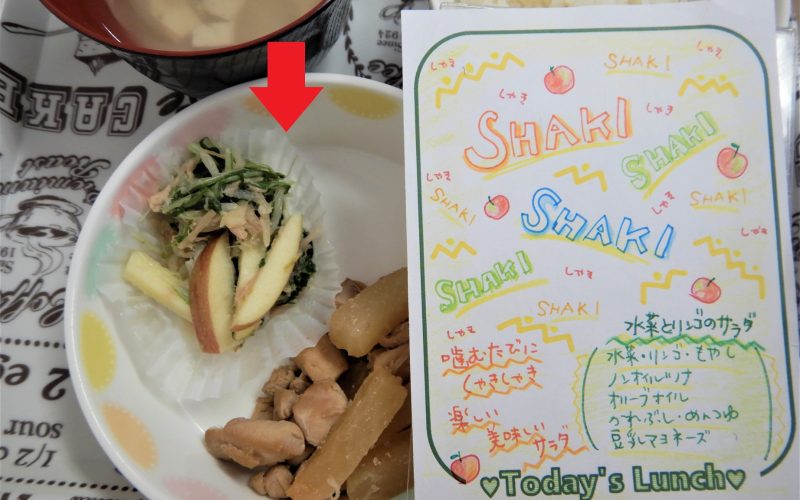 CAKE
Premium
Roast
Coffee
2 egg
1/2 c
sour
Since
1924
しゃき
しゃき
SHAKI
しゃき
しゃき
SHAKI
しゃき
SHAKI
しゃき
SHAKI
しゃき
SHAKI
SHAKI
しゃき
しゃき
SHAKI
しゃき
SHAKI
しゃき
噛むたびに
しゃきしゃき
楽しい
美味しい
サラダ
水菜とリンゴのサラダ
水菜・リンゴ・もやし
ノンオイルツナ
オリーブオイル
かつおぶし・めんつゆ
豆乳マヨネーズ
♥Today's Lunch♥